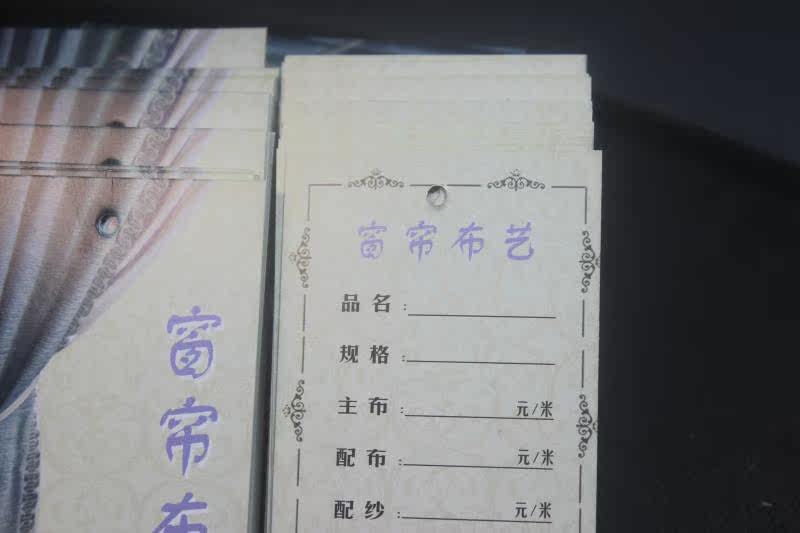 窗帘布
窗帘布艺
品名:
规格:
主布: 元/米
配布: 元/米
配纱: 元/米